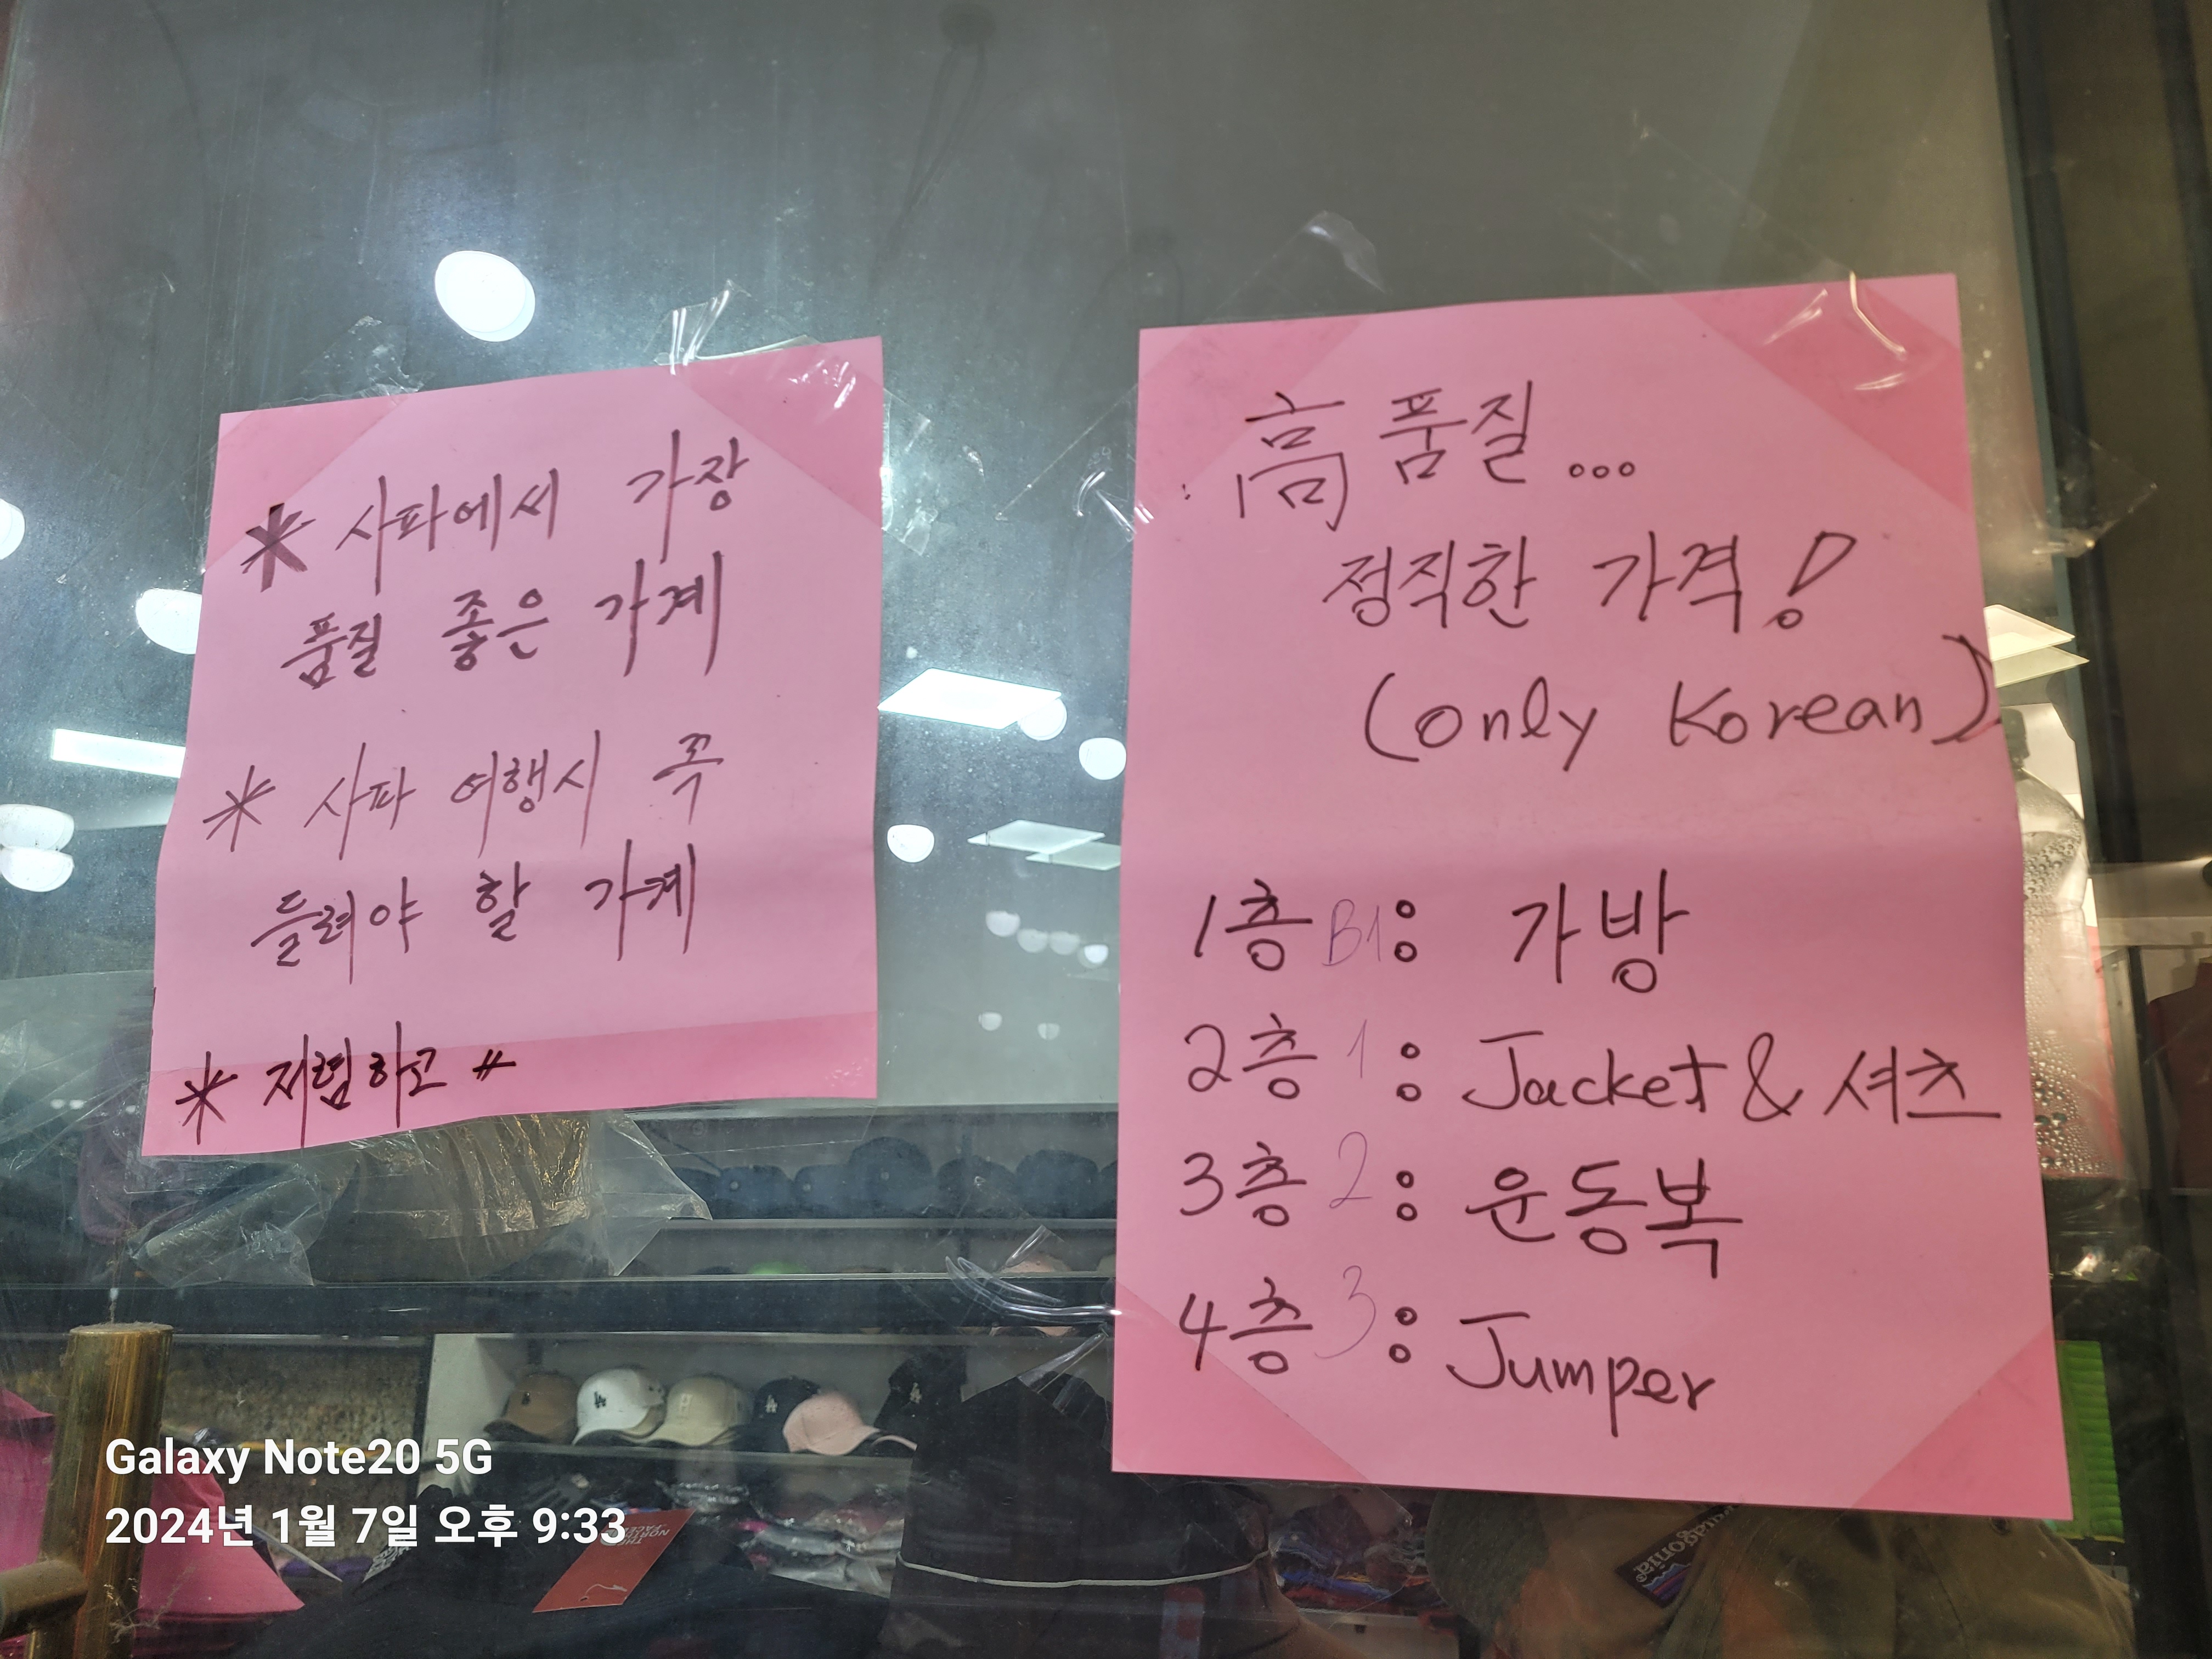 * 사파에서 가장
품질 좋은 가계
* 사파 여행시 꼭
들려야 할 가계
* 저렴하고 〃
高품질...
정직한 가격!
(only Korean)
1층 B1: 가방
2층 1: Jacket & 셔츠
3층 2: 운동복
4층 3: Jumper
Galaxy Note20 5G
2024년 1월 7일 오후 9:33
patagonia
THE NORTH FACE
LA